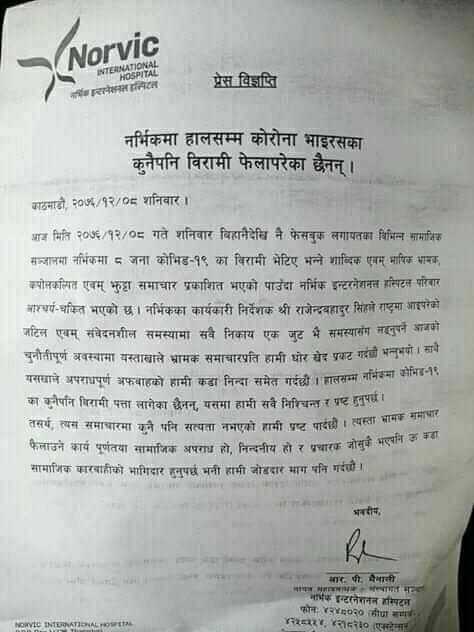 Norvic
INTERNATIONAL
HOSPITAL
नर्भिक इन्टरनेशनल हस्पिटल
प्रेस विज्ञप्ति
नर्भिकमा हालसम्म कोरोना भाइरसका
कुनैपनि विरामी फेलापरेका छैनन् ।
काठमाडौं, २०७६/१२/०८ शनिवार ।
आज मिति २०७६/१२/०८ गते शनिवार विहानैदेखि नै फेसवुक लगायतका विभिन्न सामाजिक
सञ्जालमा नर्भिकमा ८ जना कोभिड-१९ का विरामी भेटिए भन्ने शाब्दिक एवम् भाषिक भ्रामक,
कपोलकल्पित एवम् झुठ्ठा समाचार प्रकाशित भएको पाउँदा नर्भिक इन्टरनेशनल हस्पिटल परिवार
आश्चर्य-चकित भएको छ । नर्भिकका कार्यकारी निर्देशक श्री राजेन्द्रबहादुर सिंहले राष्ट्रमा आइपरेको
जटिल एवम् संवेदनशील समस्यामा सवै निकाय एक जुट भै समस्यासंग लड्नुपर्ने आजको
चुनौतीपूर्ण अवस्थामा यस्ताखाले भ्रामक समाचारप्रति हामी घोर खेद प्रकट गर्दछौं भन्नुभयो । साथै
यसखाले अपराधपूर्ण अफवाहको हामी कडा निन्दा समेत गर्दछौं । हालसम्म नर्भिकमा कोभिड-१९
का कुनैपनि विरामी पत्ता लागेका छैनन्, यसमा हामी सवै निश्चिन्त र प्रष्ट हुनुपर्छ ।
तसर्थ, त्यस समाचारमा कुनै पनि सत्यता नभएको हामी प्रष्ट पार्दछौं । त्यस्ता भ्रामक समाचार
फैलाउने कार्य पूर्णतया सामाजिक अपराध हो, निन्दनीय हो र प्रचारक जोसुकै भएपनि ऊ कडा
सामाजिक कारवाहीको भागिदार हुनुपर्छ भनी हामी जोडदार माग पनि गर्दछौं ।
भवदीय,
आर. पी. मैनाली
नर्भिक इन्टरनेशनल हस्पिटल
फोनः ४२४८०२० (सीधा सम्पर्क-
४२५८५५४, ४२१८२३० (एक्सटेन्सन
NORVIC INTERNATIONAL HOSPITAL